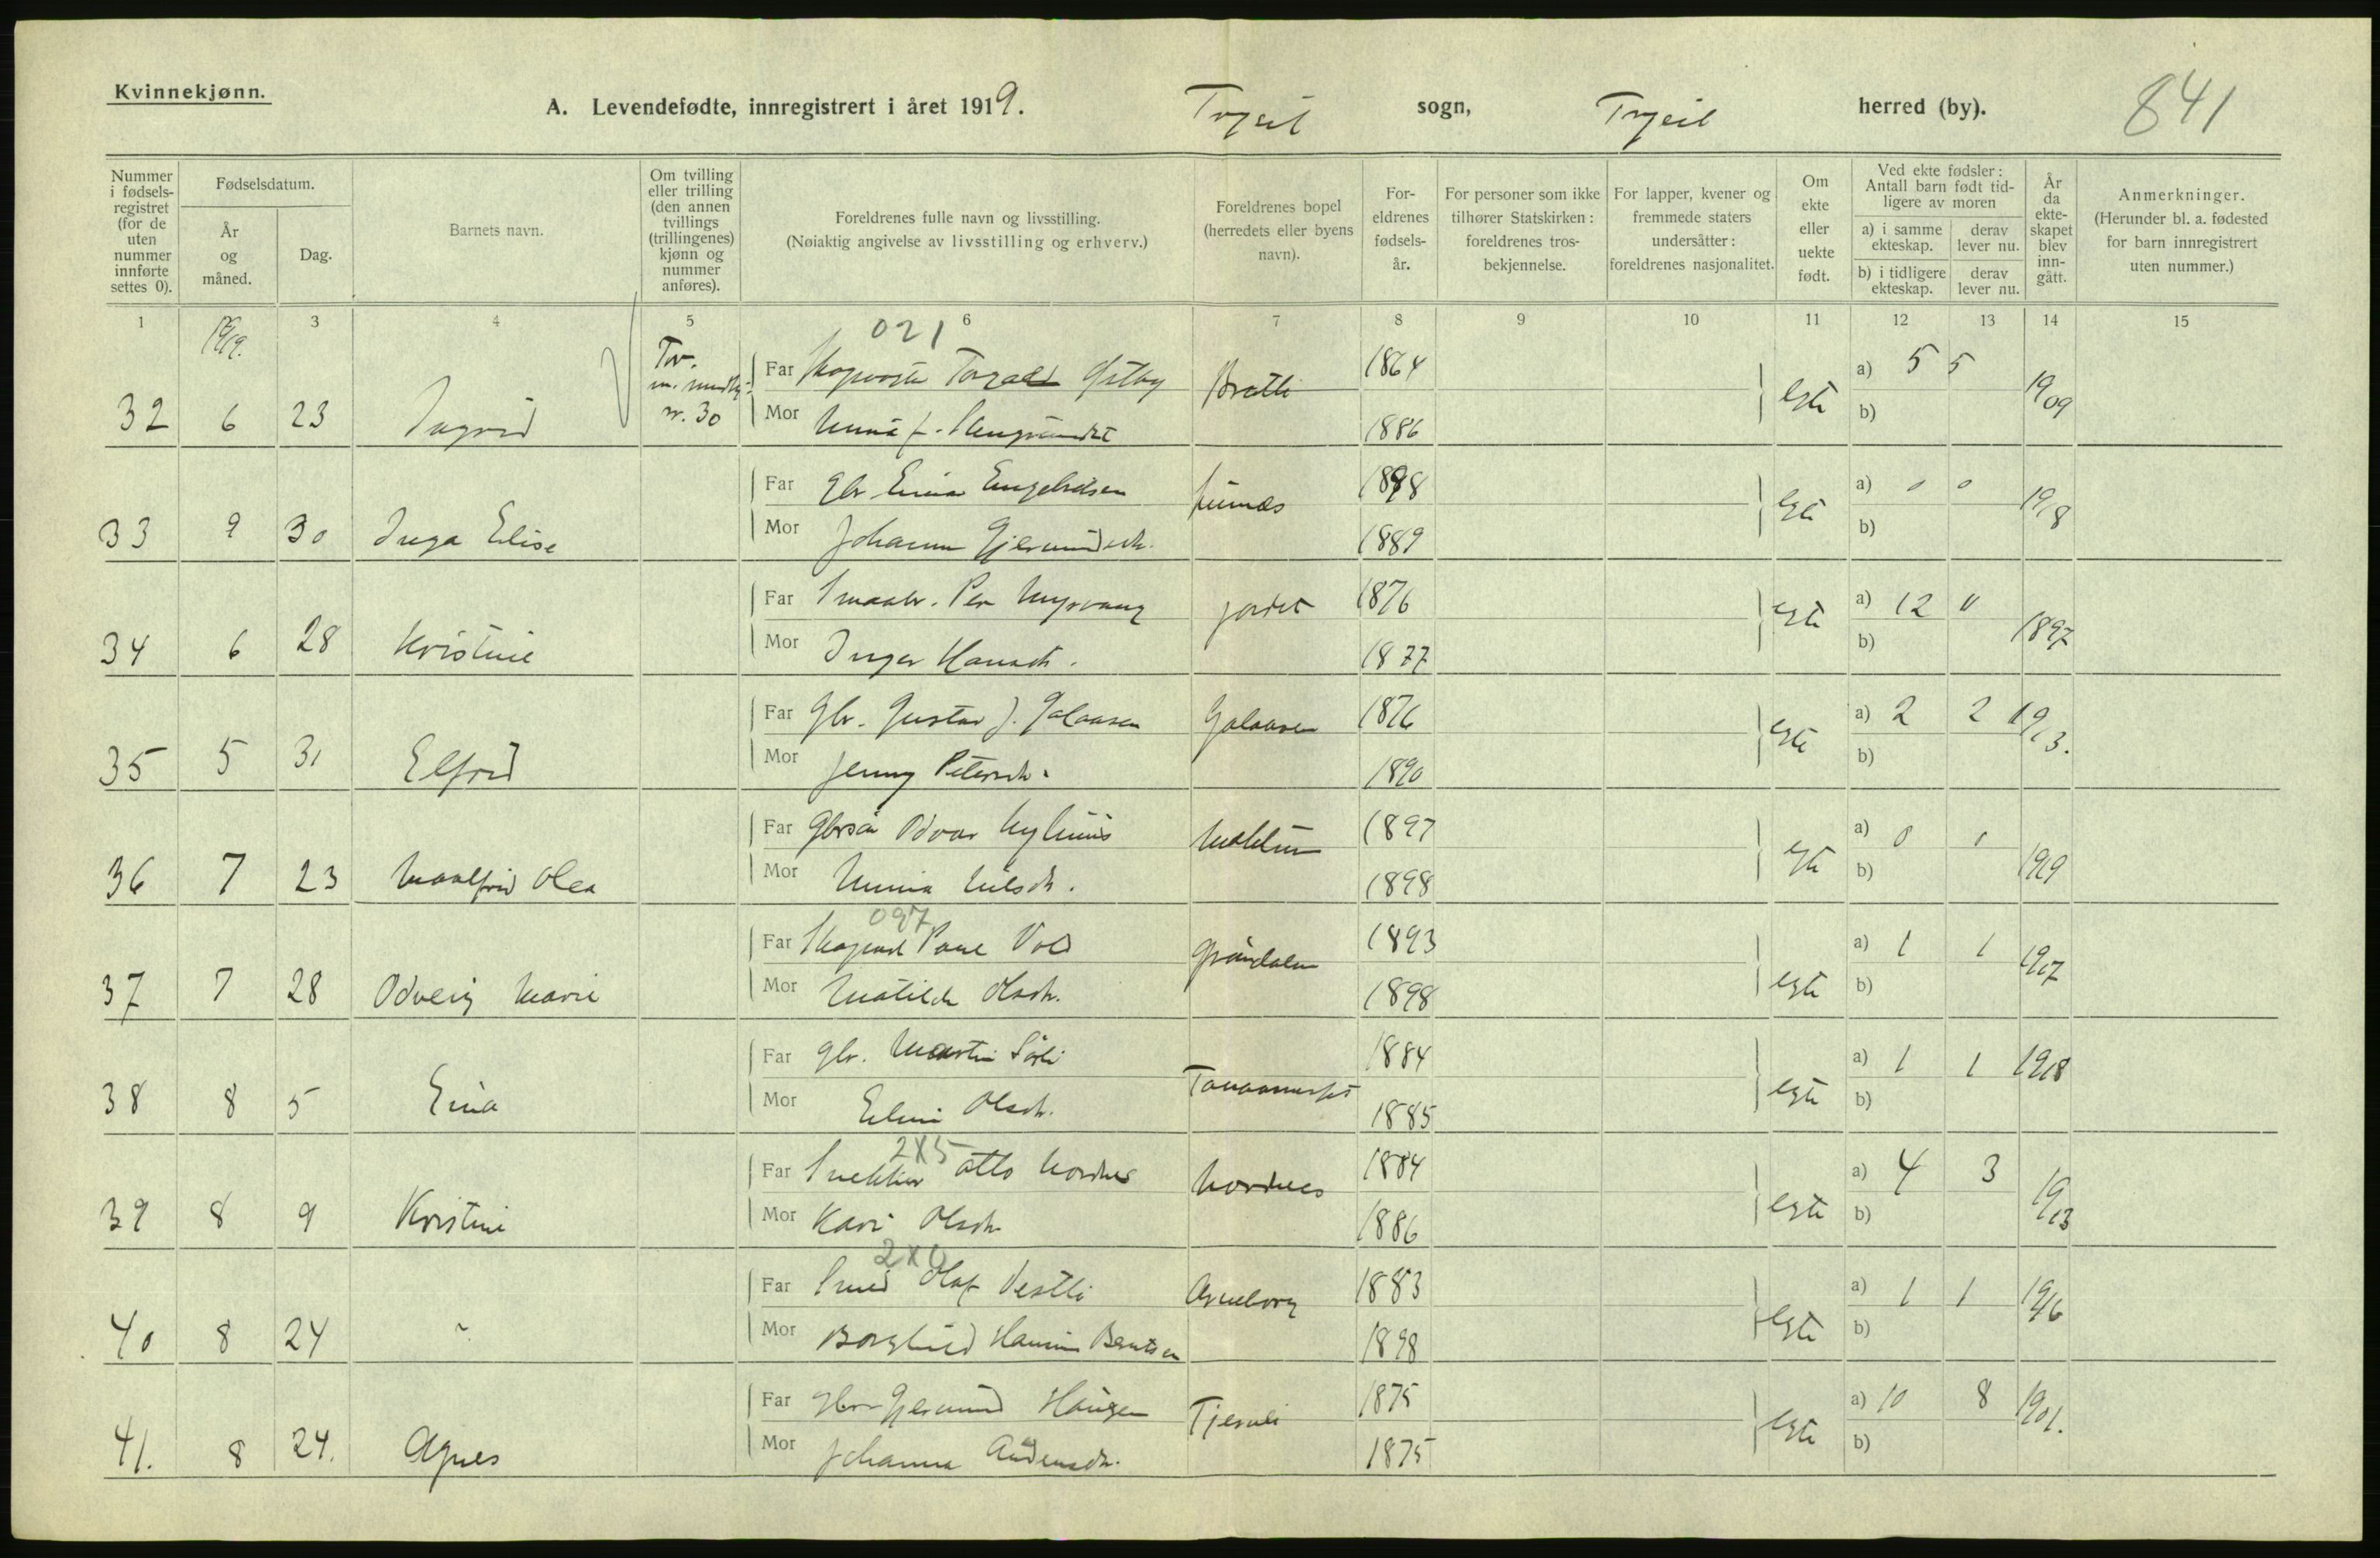 Kvinnekjønn.
A. Levendefødte, innregistrert i året 1919. Trysil sogn, Trysil herred (by). 841
Nummer i fødselsregistret (for de uten nummer innførte settes 0).
Fødselsdatum.
År og måned.
Dag.
Barnets navn.
Om tvilling eller trilling (den annen tvillings (trillingenes) kjønn og nummer anføres).
Foreldrenes fulle navn og livsstilling.
(Nøiaktig angivelse av livsstilling og erhverv.)
Foreldrenes bopel (herredets eller byens navn).
Foreldrenes fødselsår.
For personer som ikke tilhører Statskirken: foreldrenes trosbekjennelse.
For lapper, kvener og fremmede staters undersåtter: foreldrenes nasjonalitet.
Om ekte eller uekte født.
Ved ekte fødsler: Antall barn født tidligere av moren
a) i samme ekteskap.
derav lever nu.
b) i tidligere ekteskap.
derav lever nu.
År da ekteskapet blev inngått.
Anmerkninger.
(Herunder bl. a. fødested for barn innregistrert uten nummer.)
1 3 4 5 6 7 8 9 10 11 12 13 14 15
1919. 021
Tv.
nr. 30
32 6 23 Ingrid
Far Østby 1864 a) 5 5
Mor 1886 egte b) 1909
33 9 30 Inga Elise
Far Gbr. Einar Engebretsen Lunnæs 1898 a) 0 0
Mor Johanne Gjermundsdtr. 1889 egte b) 1918
34 6 28 Kristine
Far Per Myrvang Jordet 1876 a) 12
Mor Inger Hansdtr. 1877 egte b) 1897
35 5 31 Elfrid
Far Gbr. Gustav J. Galaasen Galaasen 1876 a) 2 2
Mor Jenny Petersdtr. 1890 egte b) 1913.
36 7 23 Maalfrid Olea
Far Odvar 1897 a) 0
Mor Nilsdtr. 1898 egte b) 1919
097
37 7 28 Odveig Marie
Far Paul Vold Grøndalen 1893 a) 1 1
Mor Matilde Olsdtr. 1898 egte b) 1917
38 8 5 Eina
Far Gbr. Martin Sørli 1884 a) 1 1 1918
Mor Olsdtr. 1885 egte b)
2X5
39 8 9 Kristine
Far Snekker Otto Nordnes Nordnes 1884 a) 4 3
Mor Kari Olsdtr 1886 egte b) 1913
2X0
40 8 24 ~
Far Smed Olaf Vestli Arneborg 1883 a) 1 1
Mor Borghild Berntsen 1898 egte b) 1916
41. 8 24. Agnes
Far Gbr. Gjermund Haugen Tjernli 1875 a) 10 8
Mor Johanna Andersdtr. 1875 egte b) 1901.